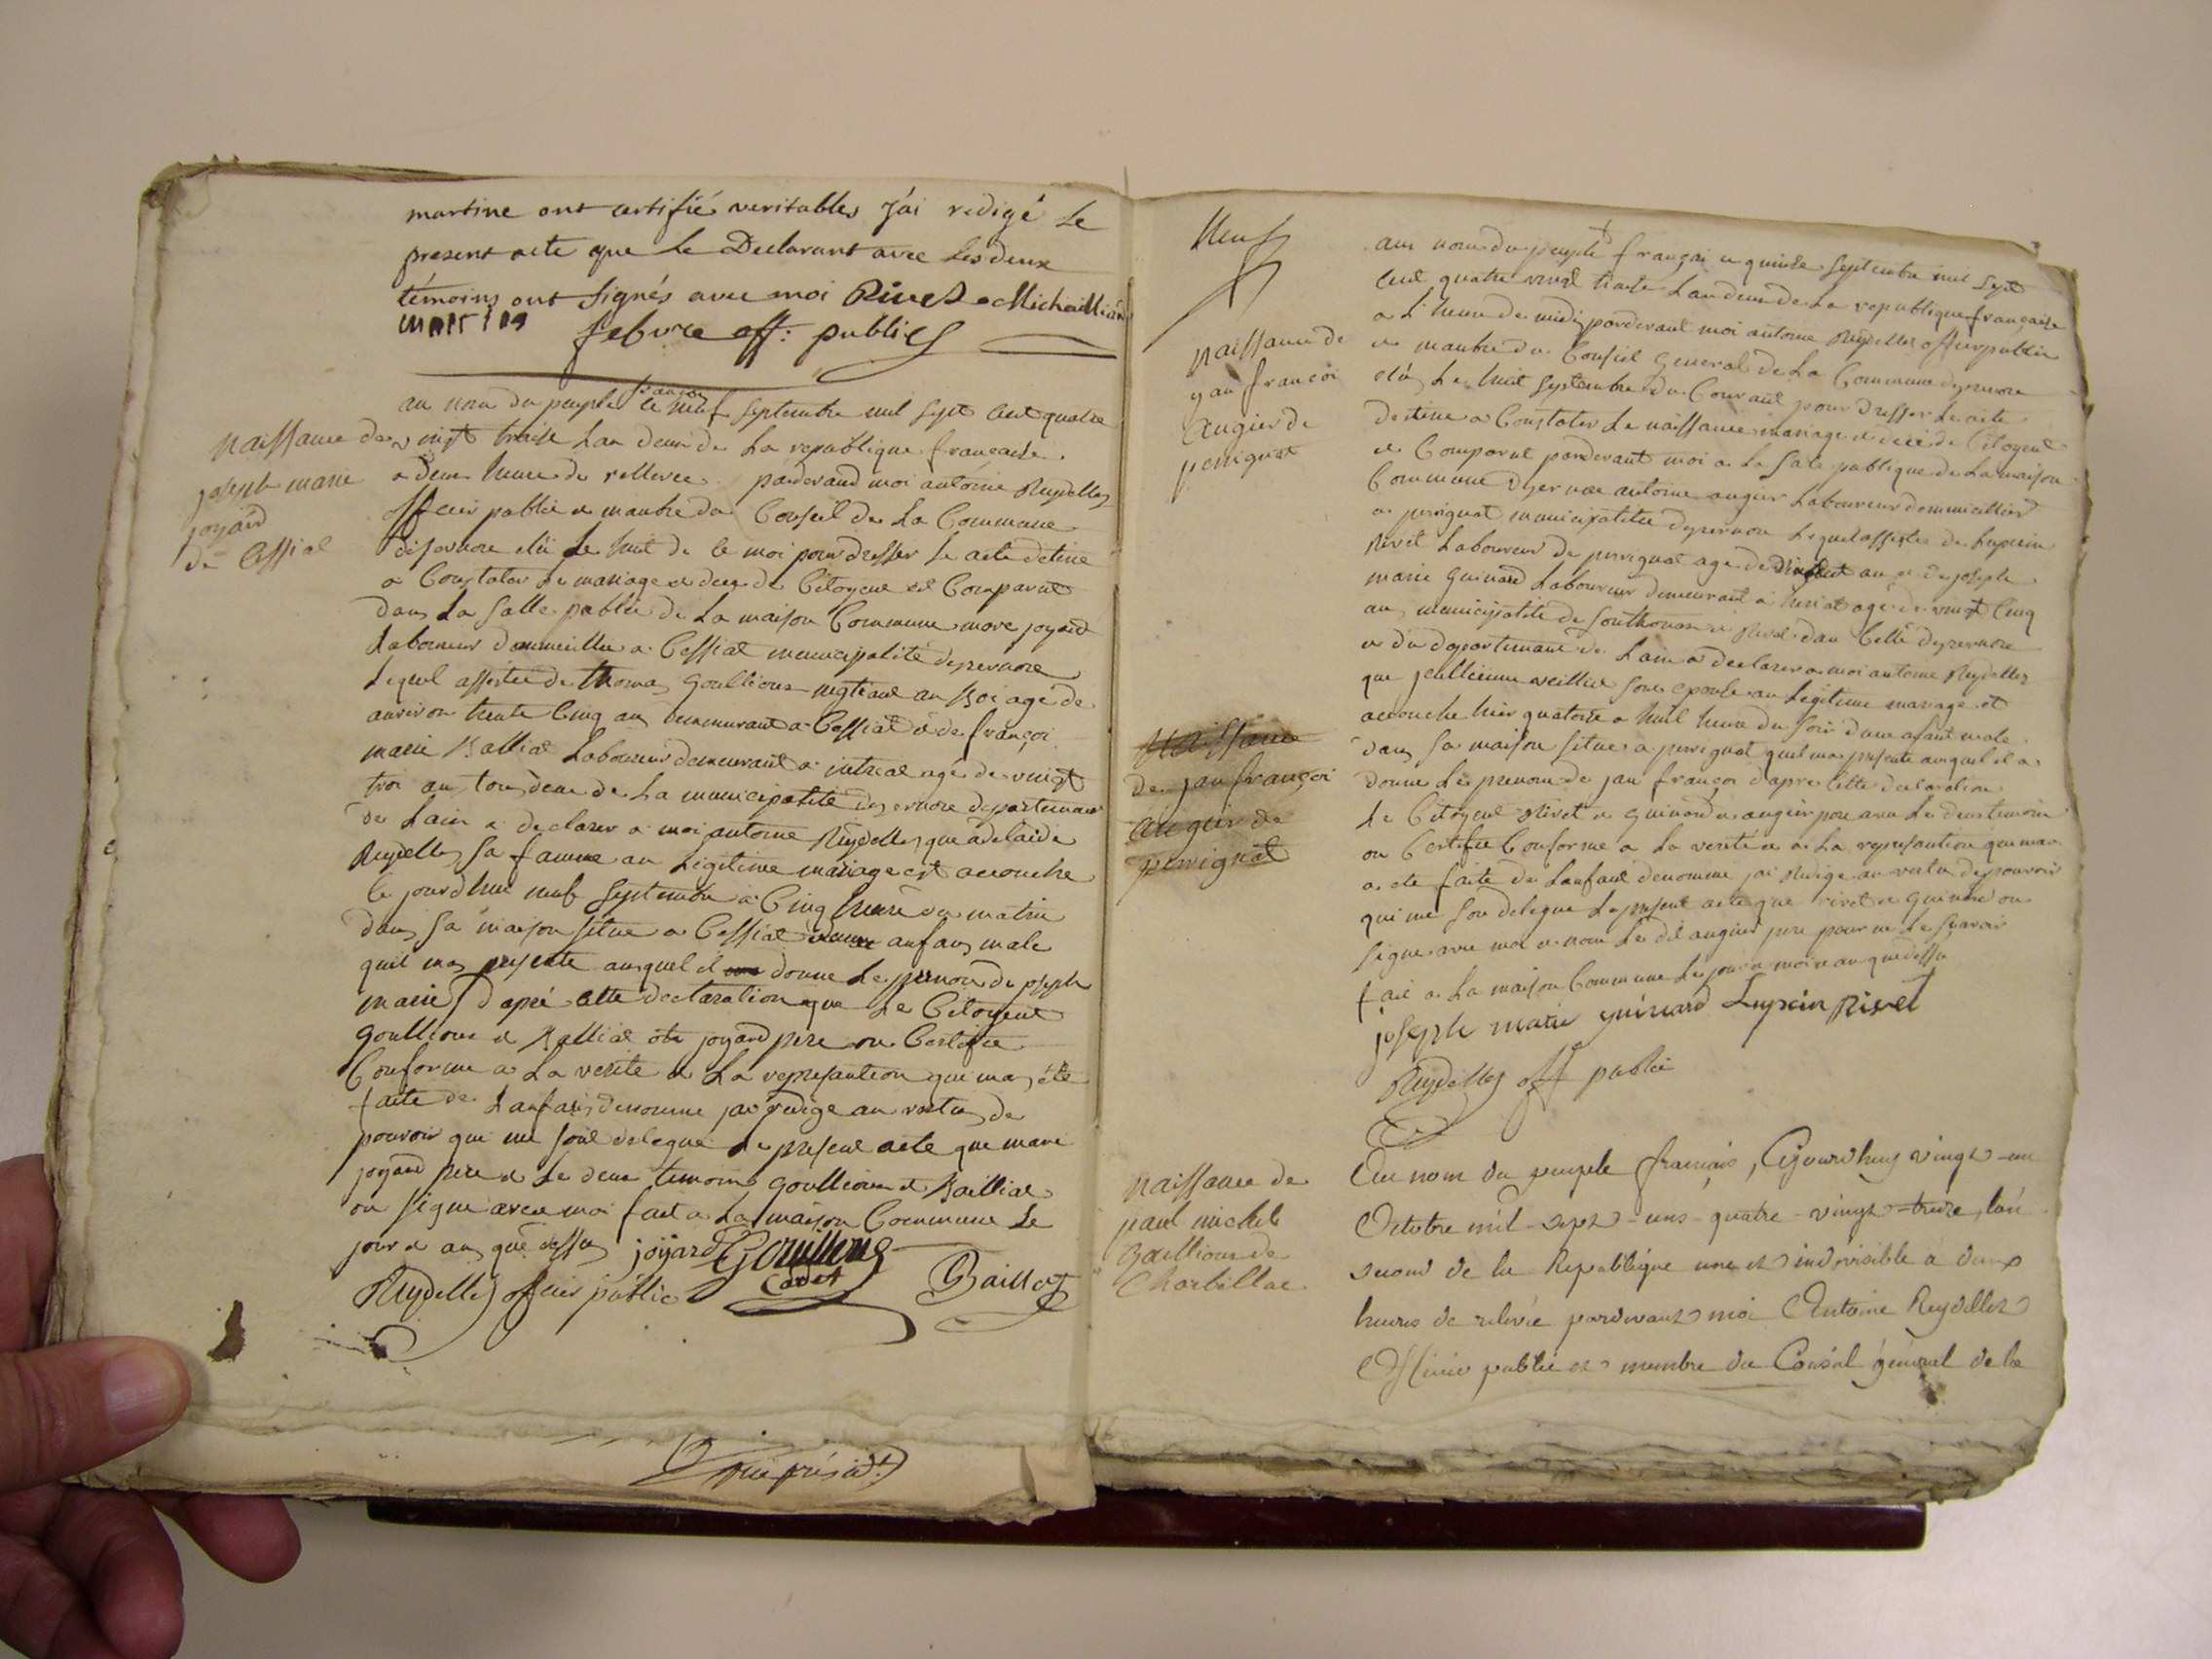 martine ont certifié veritables j'ai redigé le
present acte que le Declarant avec les deux
témoins ont signés avec moi Rivet Michaillian
febvre off. public
naissance de
joseph marie
joyard
de Cessiat
au nom du peuple francois ce neuf septembre mil sept cent quatre
vingt treise lan deux de la republique francaise
a deux heure de rellevee pardevand moi antoine Reydellez
officier public et manbre du Conseil de la Commune
disernore elû le huit de ce moi pour dresser le acte detine
a Constater le mariage et dece de Citoyent et Comparut
dans la salle public de la maison Commune marc joyard
laboureur dommicillie a Cessiat municipalité dysernore
lequel assistée de thoma goullioux negtiant au age de
anviron trente Cinq ans demmurant a Cessiat et de françoi
marie Balliat laboureur demeurant a intreat age de vingt
troi an tous deux de la municipalité dysernore departemant
de lain a declarer a moi antoine Reydellez que adelaide
Reydellez sa famme an legitime mariage est acouche
le jourdhui neuf septembre a Cinq heure du matin
dans sa maison situe a Cessiat anfans male
quil ma presente auquel il donne le prenon de joseph
marie d'apré cette declaration que le Citoyent
goullioux et Balliat joyard pere on Certifie
Conforme a la verite et la represantion qui ma été
faite de lanfans denomme jai redige an vertu de
pouvoir qui me sont delegue le present acte que marc
joyard pere et le deux temoins goullioux et Bailliat
on signe avec moi fait a la maison Commune le
jour et an que dessu joyard Gouilloux
Cadet
Baillat
Reydellez officier public
naissance de
jan françoi
augier de
perrignat
aux nom du peuple françai ce quinze septembre mil sept
cent quatre vingt traise lan deux de la republique française
a l'heure de midi pardevant moi antoine Reydellez officier public
et manbre du Conseil General de la Commune dysernore
elû le huit septembre du Courant pour dresser le acte
destine a Constater le naissance mariage et decé de Citoyent
et Comparut pardevant moi a la sale publique de la maison
Commune dysernore antoine augier laboureur dommicillier
a perrignat municipalitee dysernore lequel assistes de lupicin
Rivet laboureur de perrignat age de an et de joseph
marie guinard laboureur demeurant a age de vingt Cinq
an municipalité de sonthonax et Rivet dan Celle dysernore
et du departemant de lain a declarer a moi antoine Reydellez
que son epouse an legitime mariage et
acouche hier quatorze a huit heure du soir d'un anfant male
dans sa maison situe a perrignat quil ma presente auquel il a
donne le prenom de jan françoi dapre cette declaration
le Citoyent Rivet et guinard et augier pere avec le deux temoin
on Certifie Conforme a la verité et a la represantion qui ma
a ete faite de lanfant denomme jai redige an vertu de pouvoir
qui me son delegue le present acte que rivet et guinard on
signe avec moi et nom le dit augier pere pour ne le scavoir
fait a la maison Commune le jour et moi et an que dessu
joseph marie guinard Lupicin Rivet
Reydellez off public
Naissance
de jan françoi
augier de
perrignat
naissance de
paul michel
gaillioux de
Charbillac
Au nom du peuple français, Cejourd'huy vingt-un
Octobre mil-sept-cens-quatre-vingt-treize, l'an
second de la République une et indivisible à deux
heures de relevée pardevant moi Antoine Reydellet
Officier public et membre du Conseil général de la